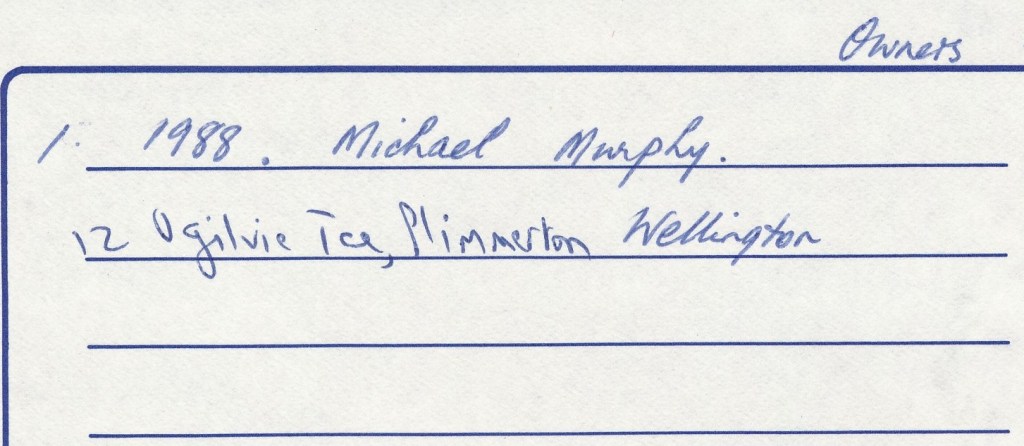 Owners
1. 1988. Michael Murphy.
12 Ogilvie Tce, Plimmerton Wellington